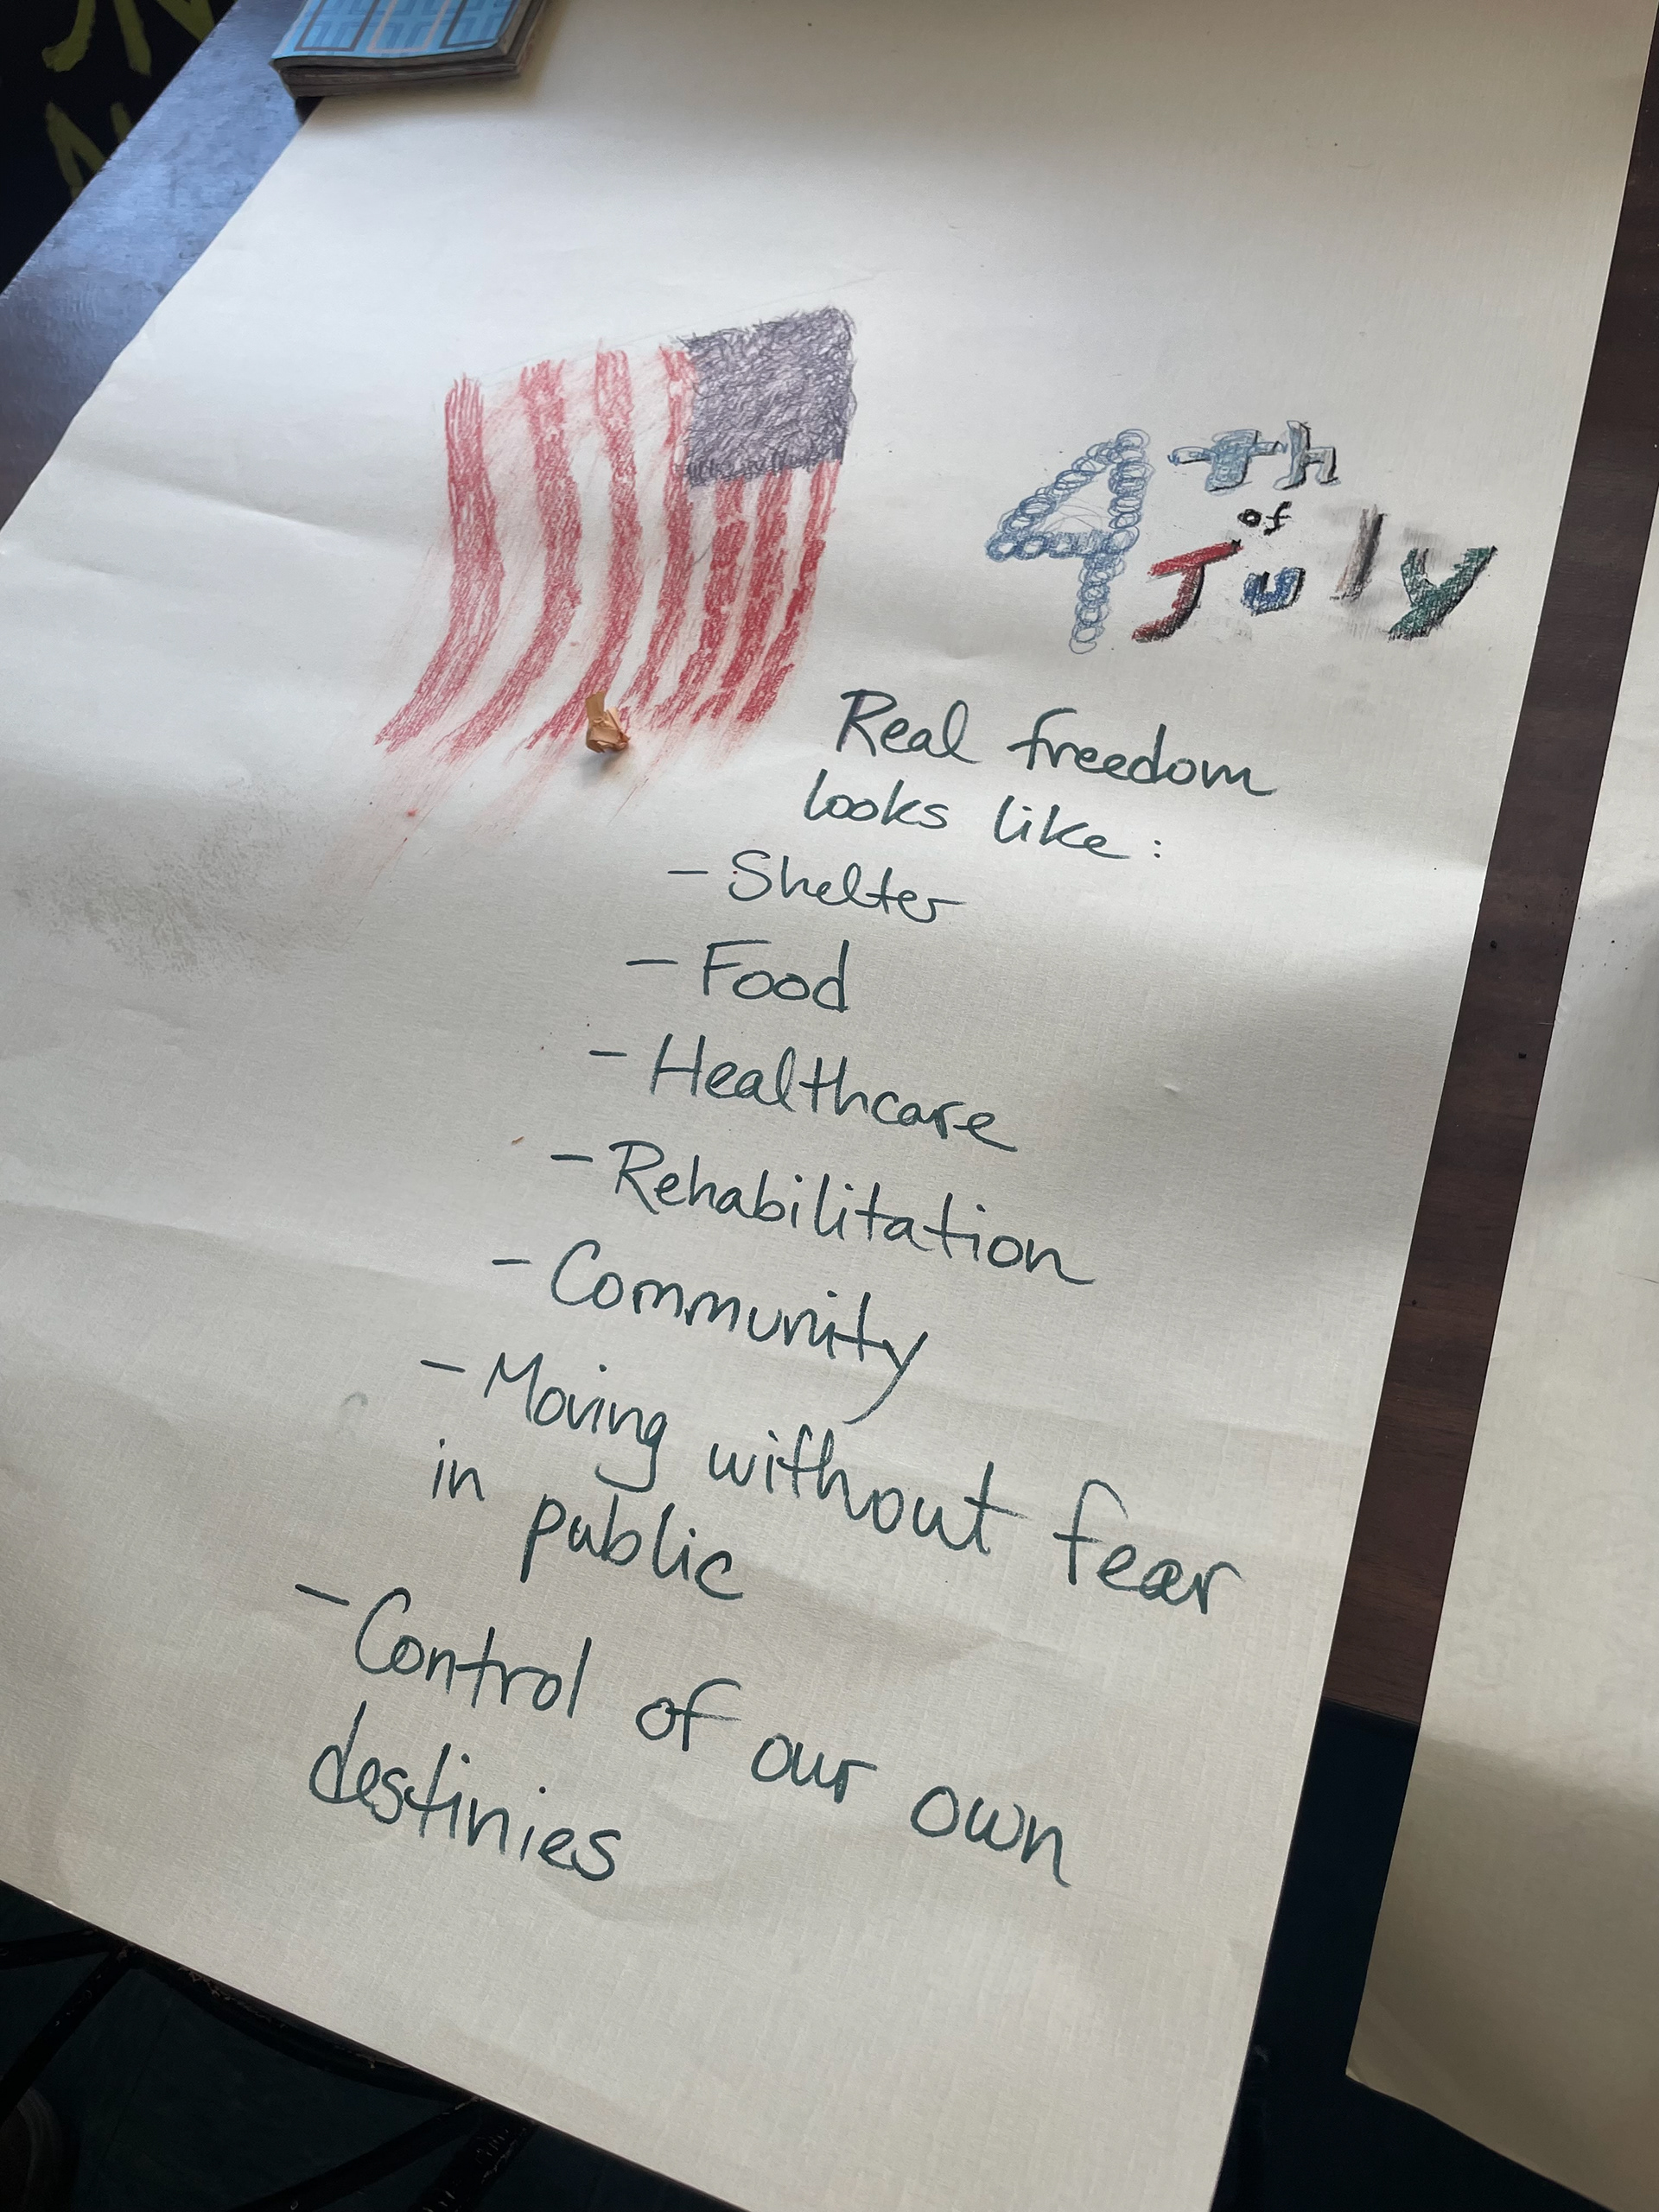 4th
of
July
Real freedom
looks like:
- Shelter
- Food
- Healthcare
- Rehabilitation
- Community
- Moving without fear
in public
- Control of our own
destinies